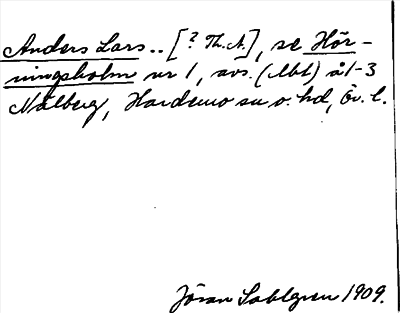 Anders Lars.. [? Th. A.], se Hör-
ningsholm nr 1, avs. (lbt) å 1-3
Nälberg, Hardemo sn o. hd, Ör. l.
Jöran Sahlgren 1909.